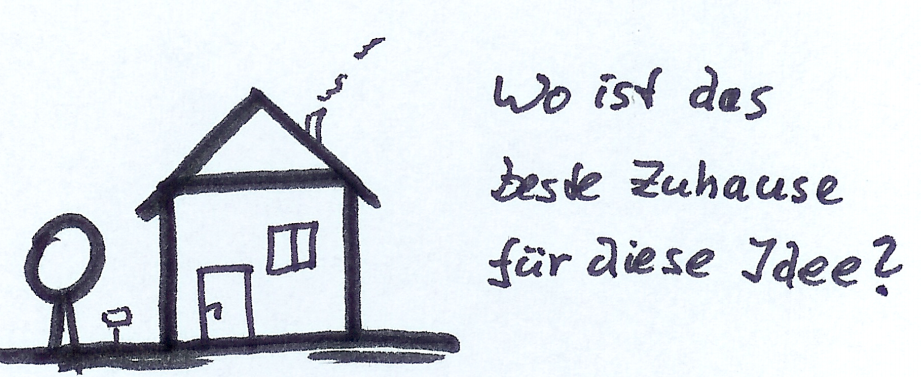 Wo ist das
beste Zuhause
für diese Idee?